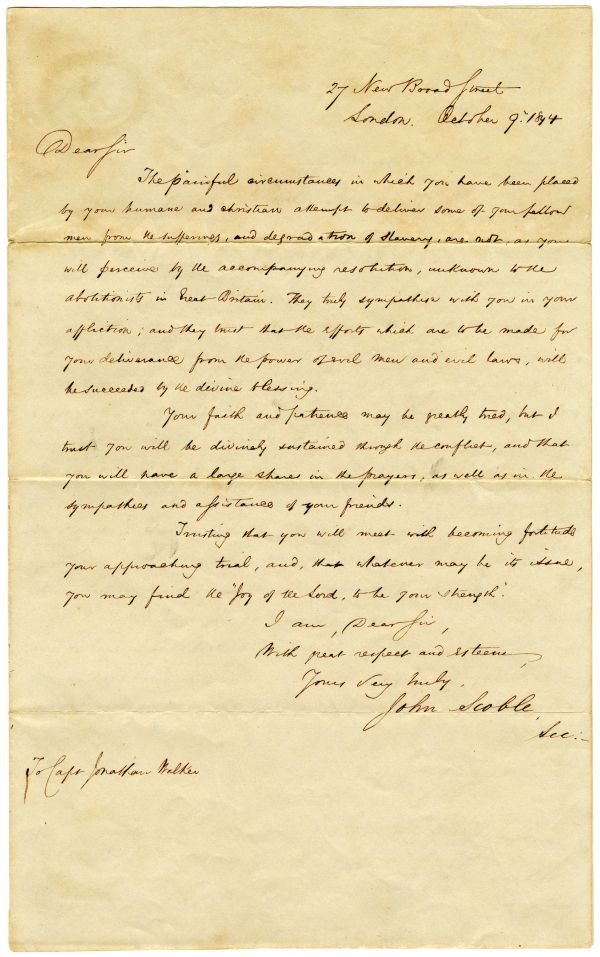 27 New Broad Street
London. October 9th. 1844
Dear Sir
The painful circumstances in which you have been placed
by your humane and christian attempt to deliver some of your fellow
men from the sufferings, and degradation of slavery, are not, as you
will perceive by the accompanying resolution, unknown to the
abolitionists in Great Britain. They truly sympathise with you in your
affliction; and they trust that the efforts which are to be made for
your deliverance from the power of evil men and evil laws, will
be succeeded by the divine blessing.
Your faith and patience may be greatly tried, but I
trust you will be divinely sustained through the conflict, and that
you will have a large share in the prayers, as well as in the
sympathies and assistance of your friends.
Trusting that you will meet with becoming fortitude
your approaching trial, and, that whatever may be its issue,
you may find the "Joy of the Lord, to be your strength".
I am, Dear Sir,
With great respect and esteem,
Yours Very truly,
John Scoble,
Sec:
To Capt Jonathan Walker